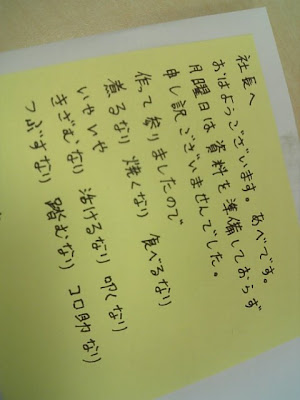 社長へ
おはようございます。あべです。
月曜日は資料を準備しておらず
申し訳ございませんでした。
作って参りましたので
煮るなり 焼くなり 食べるなり
いやいや
きざむなり 叩くなり
つぶすなり 踏むなり コロ助なり